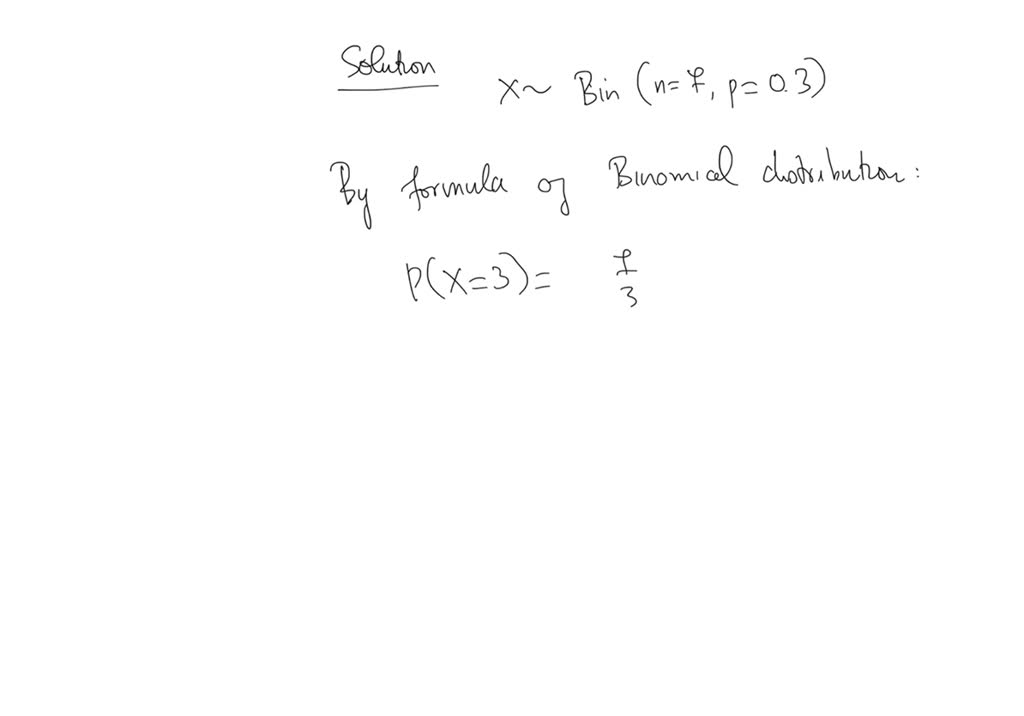 Solution
X~ Bin (n=7, p=0.3)
By formula of Binomial distribution:
P(X=3)= 7
3